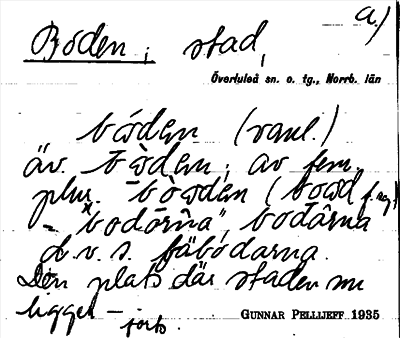 a.)
Boden, stad,
Överluleå sn. o. tg., Norrb. län
bóden (vanl.)
äv. bòden, av fem.
plur. bòwden (bowd f. sg.)
= "bodarna", bodârna
d. v. s. fäbodarna.
Den plats där staden nu
ligger –
GUNNAR PELLIJEFF 1935